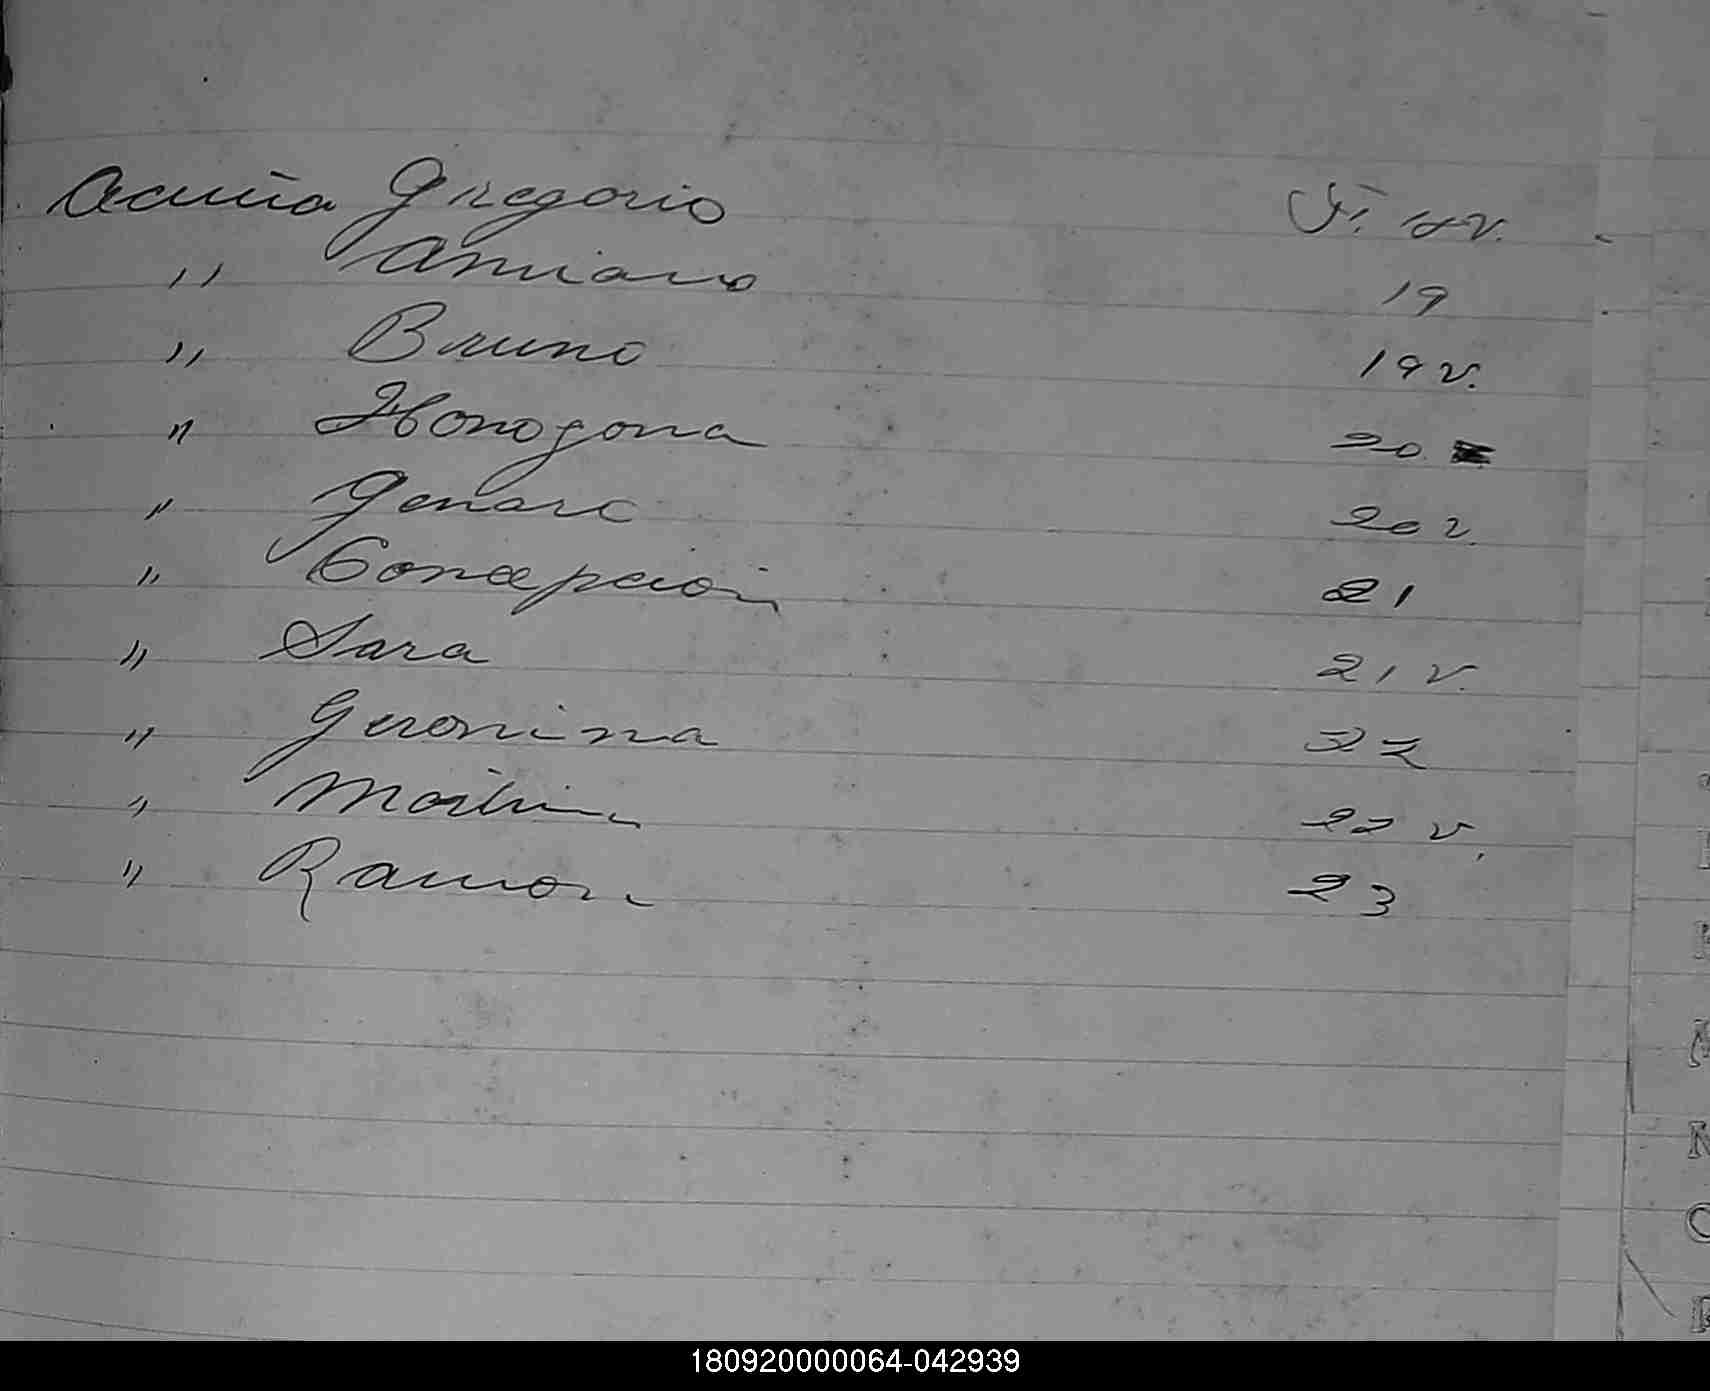 Acuña Gregorio F. 18 v.
" Amiano 19
" Bruno 19 v.
" Honogona 20
" Genaro 20 v.
" Concepción 21
" Sara 21 v.
" Geronima 22
" Martin 22 v.
" Ramon 23
N
O
180920000064-042939